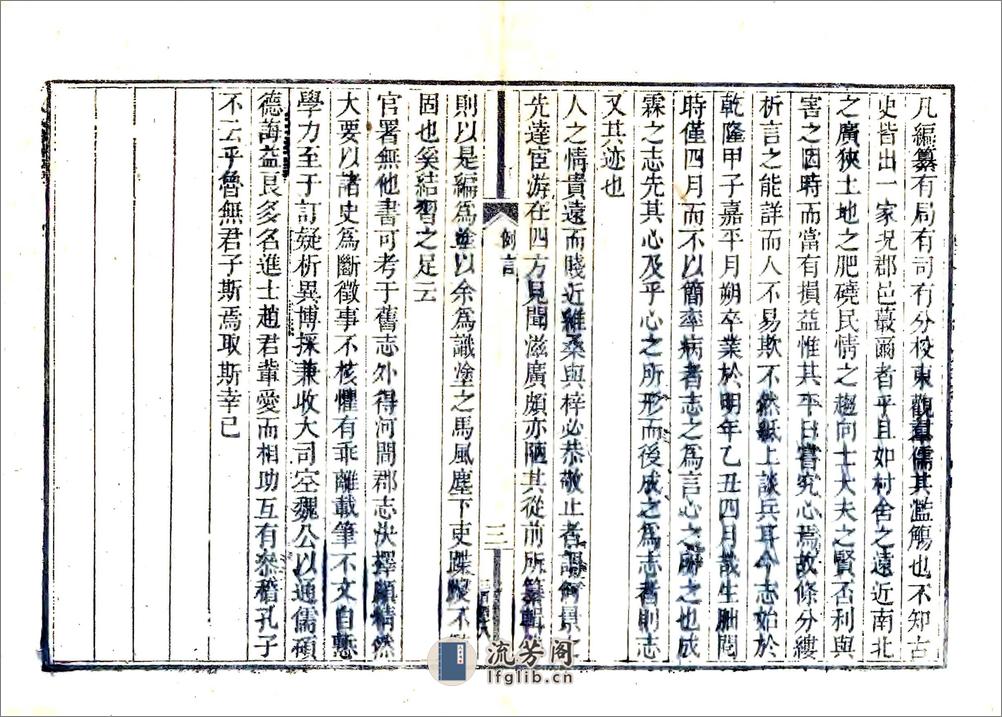 凡編纂有局有司有分校東觀羣儒其濫觴也不知古
史皆出一家況郡邑蕞爾者乎且如村舍之遠近南北
之廣狹土地之肥磽民情之趨向士大夫之賢否利與
害之因時而當有損益惟其平日嘗究心焉故條分縷
析言之能詳而人不易欺不然紙上談兵耳今志始於
乾隆甲子嘉平月朔卒業於明年乙丑四月哉生朏閱
時僅四月而不以簡率病者志之為言心之所之也成
霖之志先其心及乎心之所形而後成之為志者則志
又其迹也
人之情貴遠而賤近維桑與梓必恭敬止者謂何景
先達宦游在四方見聞滋廣頗亦陋其從前所纂輯
例言
三
則以是編為並以余為識塗之馬風塵下吏蹀躞不
固也奚結習之足云
官署無他書可考于舊志外得河間郡志決擇頗精然
大要以諸史為斷徵事不核懼有乖離載筆不文自慙
學力至于訂疑析異博採兼收大司空魏公以通儒碩
德誨益良多名進士趙君輩愛而相助互有叅稽孔子
不云乎魯無君子斯焉取斯幸已
流芳閣
lfglib.cn